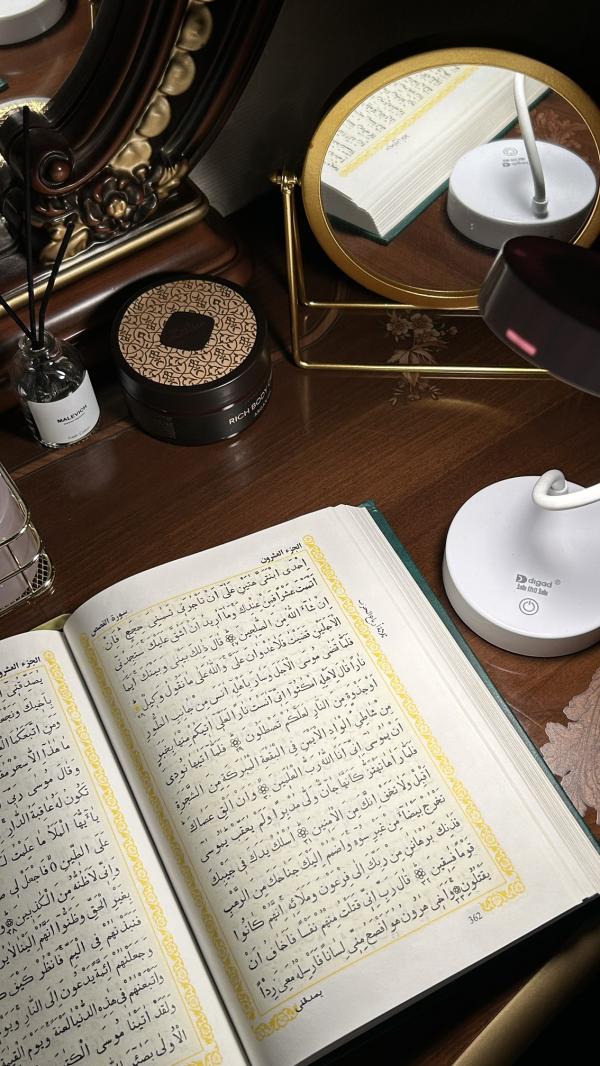 MALEVICH
RICH BODY
digad
الجزء العشرون
سورة القصص
إحدى ابنتي هتين على أن تأجرني ثمني حجج فإن
أتممت عشرا فمن عندك وما أريد أن أشق عليك ستجدني
إن شاء الله من الصلحين ۞ قال ذلك بيني وبينك أيما
الأجلين قضيت فلا عدوان علي والله على ما نقول وكيل ۞
فلما قضى موسى الأجل وسار بأهله آنس من جانب الطور
نارا قال لأهله امكثوا إني آنست نارا لعلي آتيكم منها بخبر
أو جذوة من النار لعلكم تصطلون ۞ فلما أتيها نودي
من شاطئ الواد الأيمن في البقعة المبركة من الشجرة
أن يموسى إني أنا الله رب العلمين ۞ وأن ألق عصاك
فلما رآها تهتز كأنها جان ولى مدبرا ولم يعقب يموسى
أقبل ولا تخف إنك من الآمنين ۞ اسلك يدك في جيبك
تخرج بيضاء من غير سوء واضمم إليك جناحك من الرهب
فذنك برهانان من ربك إلى فرعون وملائه إنهم كانوا
قوما فسقين ۞ قال رب إني قتلت منهم نفسا فأخاف أن
يقتلون ۞ وأخي هرون هو أفصح مني لسانا فأرسله معي ردءا
يصدقني
362
الجزء
يصدقني
بأخيك ونجعل
ومن اتبعكما
ما هذا إلا سحر
وقال موسى ربي
تكون له عاقبة الدار
يا أيها الملأ ما علمت
على الطين فاجعل لي
وإني لأظنه من الكذبين
بغير الحق وظنوا أنهم إلينا لا
فنبذنهم في اليم فانظر كيف
وجعلنهم أئمة يدعون إلى النار
وأتبعنهم في هذه الدنيا لعنة ويوم القيمة
ولقد آتينا موسى الكتب
الأولى بصائر